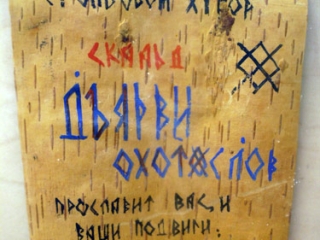 СКАЛЬД
ДЪЯРВИ
ОХОТАСЛОВ
ПРОСЛАВИТ ВАС, И
ВАШИ ПОДВИГИ: